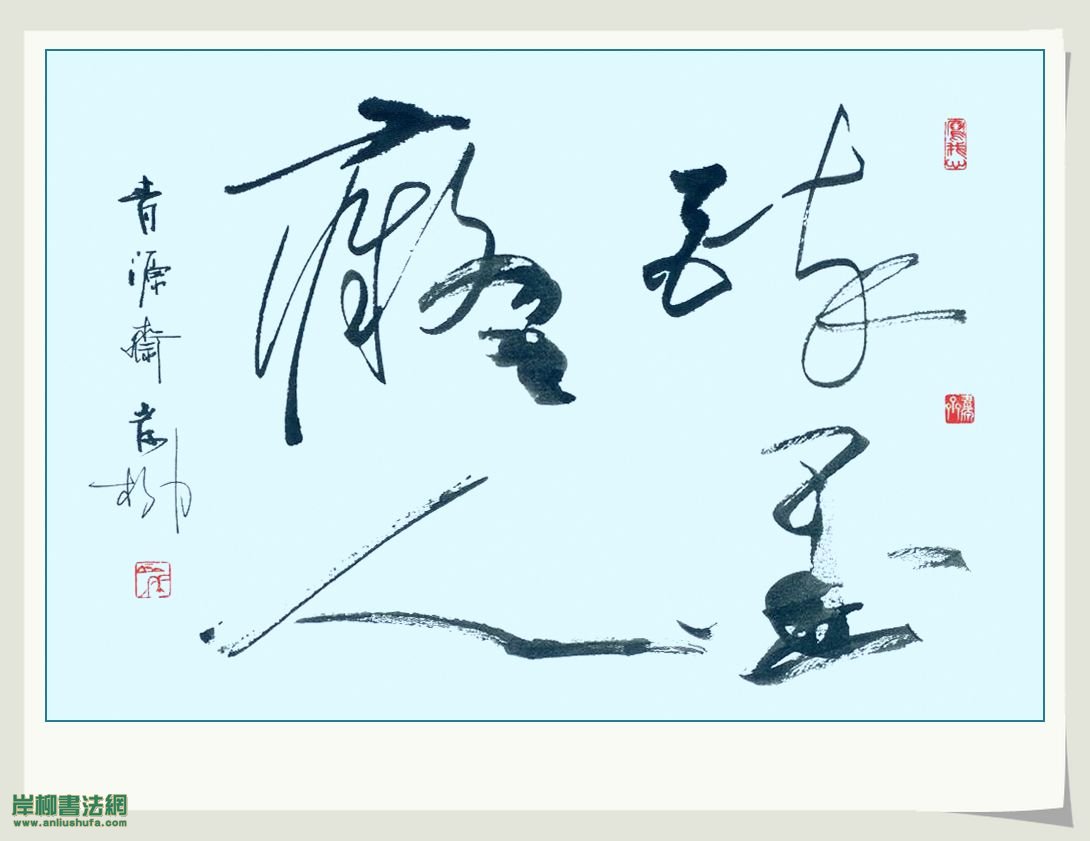 醉墨
癡人
青源齋岸柳
岸柳書法網
www.anliushufa.com